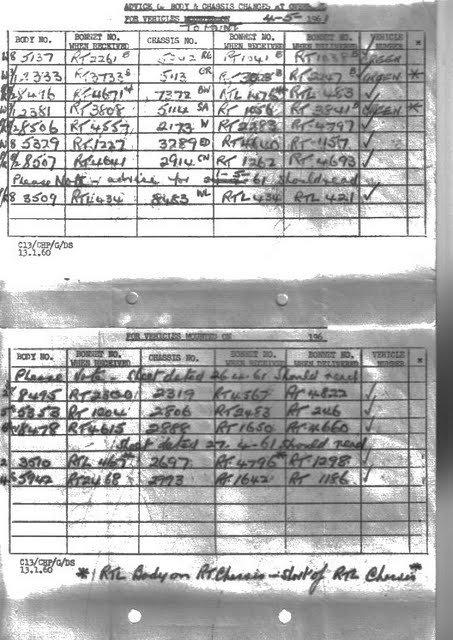 ADVICE OF BODY & CHASSIS CHANGES AT
FOR VEHICLES MOUNTED ON 4-5- 1961
TO PAINT
BODY NO. BONNET NO. WHEN RECEIVED CHASSIS NO. BONNET NO. WHEN RECEIVED BONNET NO. WHEN DELIVERED VEHICLE NUMBER *
8 5137 RT 2261 B RT 1041 B RT 1038 B GREEN
12333 RT 3733 5113 GR RT 2247 B GREEN *
8496 RT 4671 7372 BW RTL 1475 RTL 483 ✓
12381 RT 3808 5114 SA RT 1056 RT 3841 B GREEN *
8506 RT 4557 2173 W RT 2383 RT 4797 ✓
8 5329 RT 1227 3789 ED RT 4640 RT 1157 ✓
8507 RT 4641 2914 CN RT 1262 RT 4693 ✓
Please Note - advice for -5-61 should read
8 3509 RTL 434 8483 WL RTL 434 RTL 421 ✓
C13/CHP/G/DS
13.1.60
FOR VEHICLES MOUNTED ON 196
BODY NO. BONNET NO. WHEN RECEIVED CHASSIS NO. BONNET NO. WHEN RECEIVED BONNET NO. WHEN DELIVERED VEHICLE NUMBER *
Please Note - Sheet dated 26-4-61 Should read
8495 RT 2319 RT 4567 RT 4822 ✓
5353 RT 1204 2806 RT 2483 RT 246 ✓
8478 RT 4615 2888 RT 1650 RT 4660 ✓
Sheet dated 27-4-61 Should read
3510 RTL 467* 2697 RT 4796* RT 1298 ✓
5942 RT 2468 2993 RT 1642 RT 1186 ✓
C13/CHP/G/DS
13.1.60
* RTL Body on RT Chassis - Short of RTL Chassis *